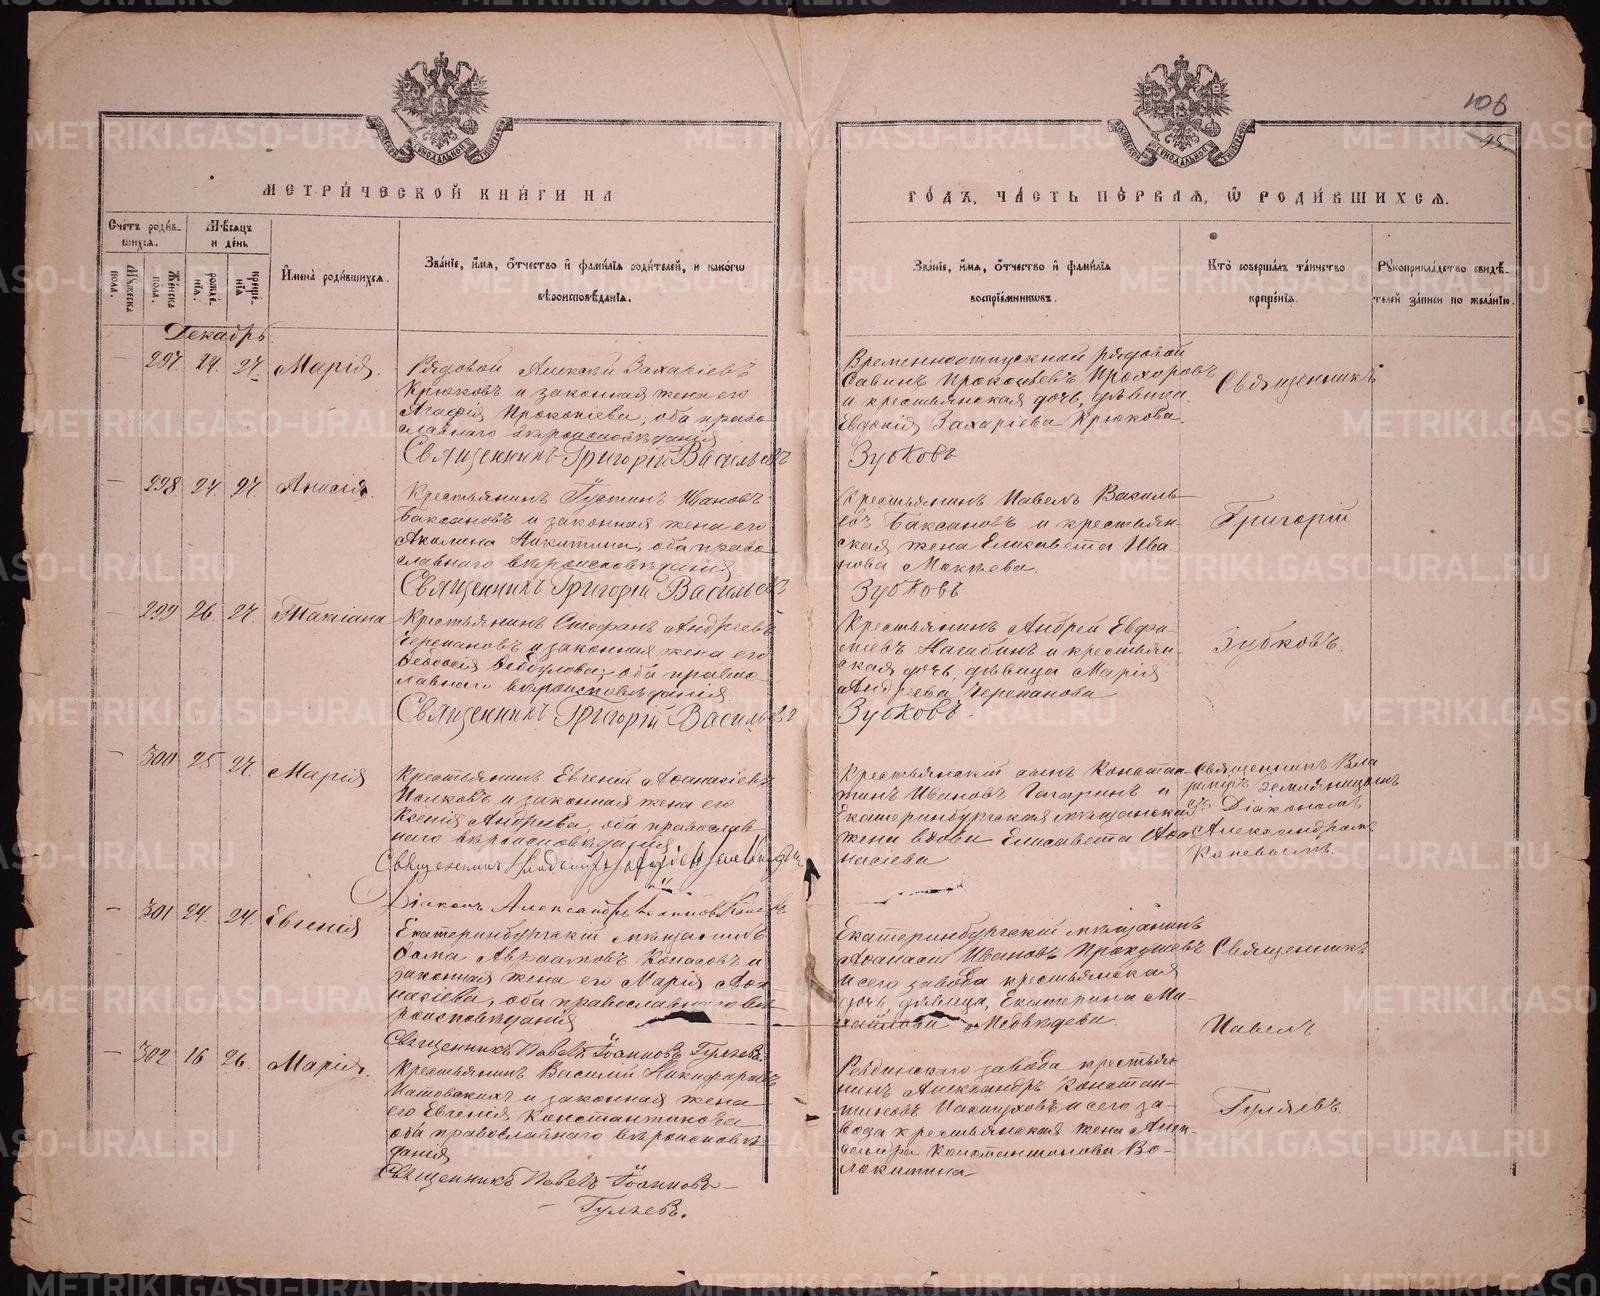 106
45
МЕТРИЧЕСКОЙ КНИГИ НА
ГОДЪ, ЧАСТЬ ПЕРВАЯ, Ѡ РОДИВШИХСЯ.
Счетъ родившихся.
Мѣсяцъ и день
Мужеска пола.
Женска пола.
рожденія.
крещенія
Имена родившихся.
Званіе, имя, отчество и фамилія родителей, и какогѡ
вѣроисповѣданія.
Званіе, имя, отчество и фамилія
воспріемниковъ.
Кто совершалъ таинство
крещенія.
Рукоприкладство свидѣ-
телей записи по желанію.
Декабрь.
297 24. 27. Марія.
Рядовой Алексѣй Захаріевъ
Крюковъ и законная жена его
Агафія Прокопіева, оба право
славнаго вѣроисповѣданія
Священникъ Григорій Васильевъ
Временноотпускной рядовой
Савинъ Прокопьевъ Прохоровъ
и крестьянская дочь, дѣвица
Евдокія Захаріева Крюкова.
Зубковъ
Священникъ
298 24 27.
Крестьянинъ Іустинъ Ивановъ
Баксановъ и законная жена его
Акилина Никитина, оба право
славнаго вѣроисповѣданія.
Священникъ Григорій Васильевъ
Крестьянинъ Павелъ Василь-
евъ Баксановъ и крестьян-
ская жена Елисавета Ива
нова Мокѣева.
Зубковъ
Григорій
299 26. 27. Татіана
Крестьянинъ Стефанъ Андреевъ
Черепановъ и законная жена его
Ѳеодосія оба право
славнаго вѣроисповѣданія
Священникъ Григорій Васильевъ
Крестьянинъ Андрей Евфи-
міевъ Нагибинъ и крестьян-
ская дочь, дѣвица Марія
Андреева Черепанова
Зубковъ.
Зубковъ.
300 25 27. Марія
Крестьянинъ Евгеній Аѳанасіевъ
и законная жена его
Ксенія Андреева, оба православ
наго вѣроисповѣданія
Священникъ
Крестьянскій сынъ Констан-
тинъ Ивановъ Гагаринъ и
Екатеринбургская мѣщанская
жена вдова Елисавета Аѳа
насіева
Священникъ Вла
димиръ Земляницынъ
съ Діакономъ
Александромъ
301 24. 24. Евгенія
Діаконъ Александръ
Екатеринбургскій мѣщанинъ
Ѳома Авраамовъ и
законная жена его Марія Аѳа
насіева, оба православнаго вѣ
роисповѣданія
Священникъ Павелъ Іоанновъ Гуляевъ.
Екатеринбургскій мѣщанинъ
Аѳанасій Ивановъ
и сего завода крестьянская
дочь, дѣвица, Екатерина Ми-
хайлова Медвѣдева.
Священникъ
Павелъ
302 16 26. Марія.
Крестьянинъ Василій Никифоровъ
и законная жена
его Евгенія Константинова
оба православнаго вѣроисповѣ
данія
Священникъ Павелъ Іоанновъ
Гуляевъ.
Ревдинскаго завода крестья
нинъ Александръ Констан-
тиновъ Пастуховъ и сего за-
вода крестьянская жена Алек-
сандра Константинова Во-
локитина
Гуляевъ
METRIKI.GASO-URAL.RU